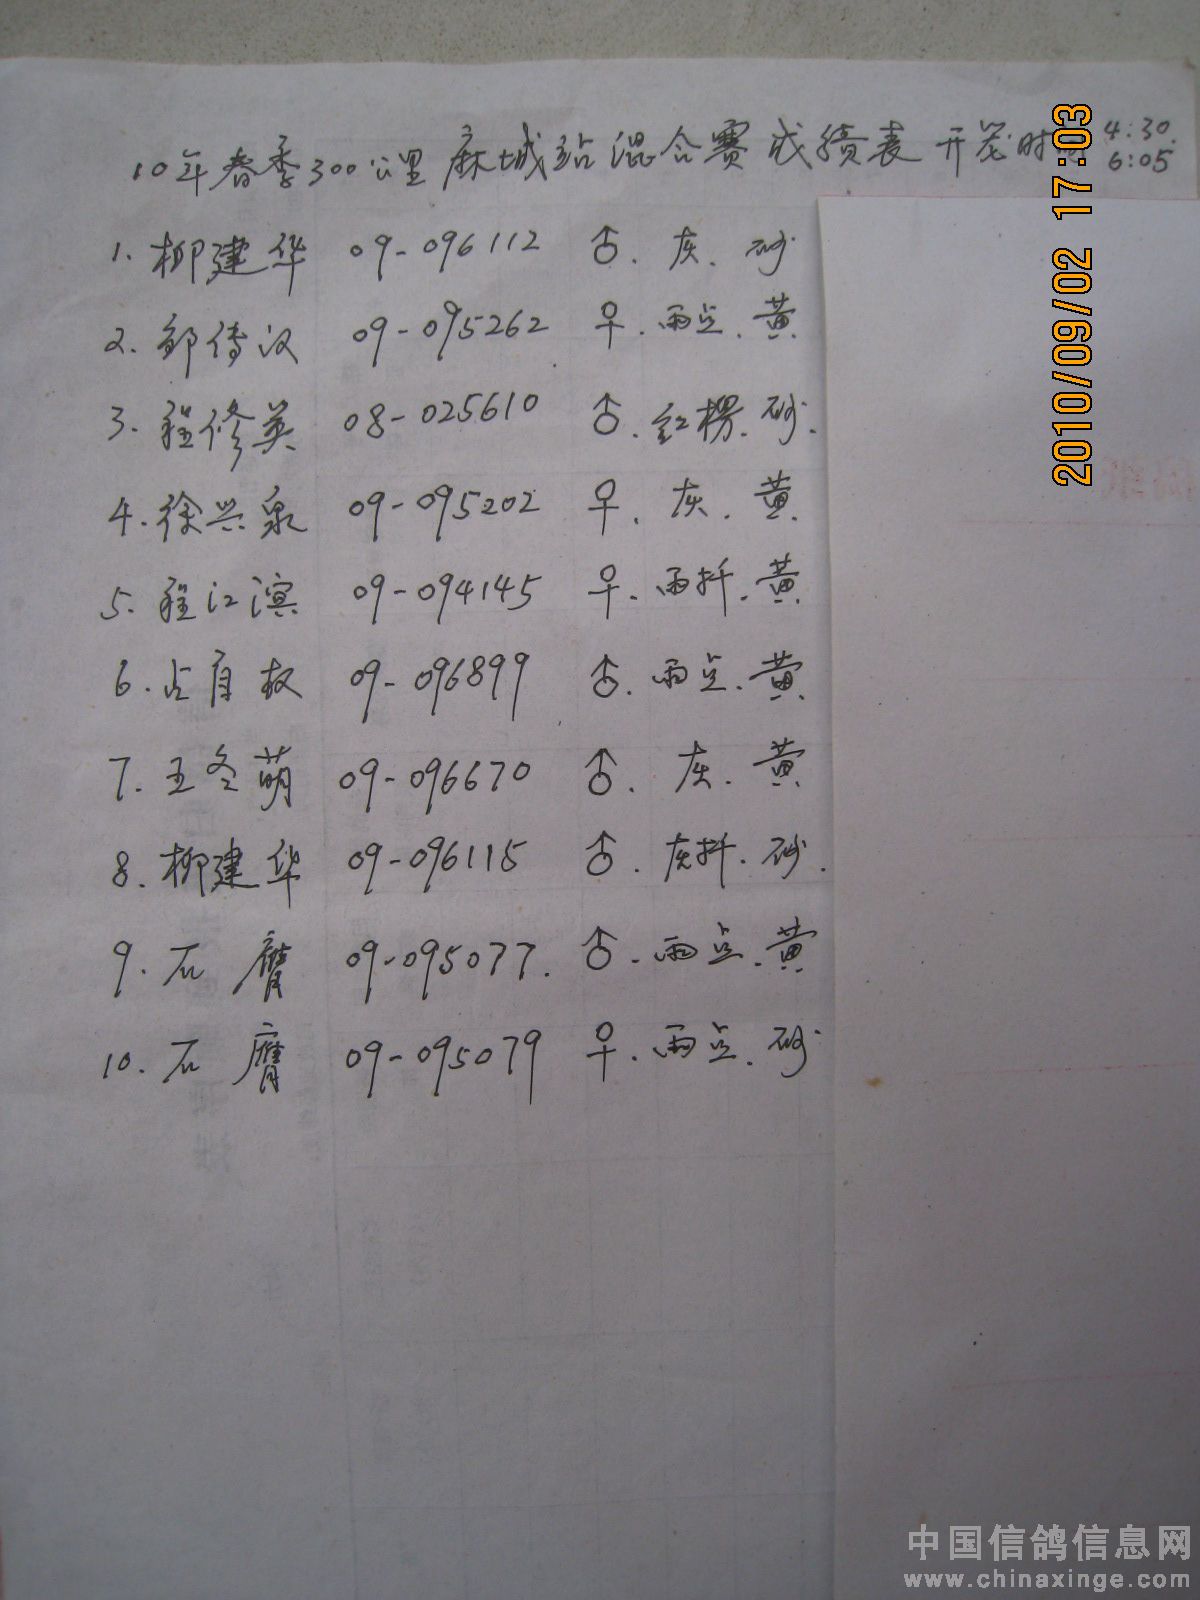 10年春季300公里麻城站混合赛成绩表 开笼时间 4:30 6:05
1. 柳建华 09-096112 ♂. 灰. 砂
2. 邹传汉 09-095262 ♀. 雨点. 黄
3. 程修英 08-025610 ♂. 红楞. 砂.
4. 徐兴泉 09-095202 ♀. 灰. 黄
5. 程江滨 09-094145 ♀. 雨扦. 黄
6. 占有权 09-096899 ♂. 雨点. 黄
7. 王冬萌 09-096670 ♂. 灰. 黄
8. 柳建华 09-096115 ♂. 灰扦. 砂.
9. 石 09-095077. ♂. 雨点. 黄
10. 石 09-095079 ♀. 雨点. 砂
2010/09/02 17:03
中国信鸽信息网
www.chinaxinge.com